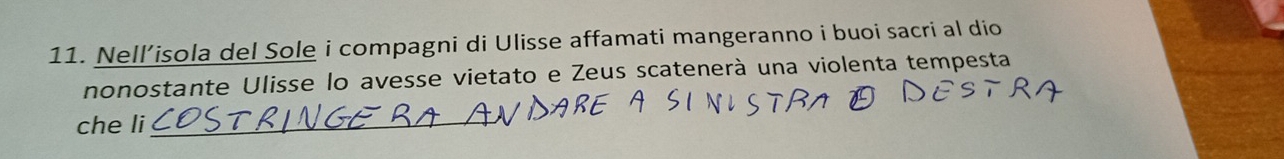 11. Nell'isola del Sole i compagni di Ulisse affamati mangeranno i buoi sacri al dio
nonostante Ulisse lo avesse vietato e Zeus scatenerà una violenta tempesta
che li COSTRINGERA ANDARE A SINISTRA O DESTRA